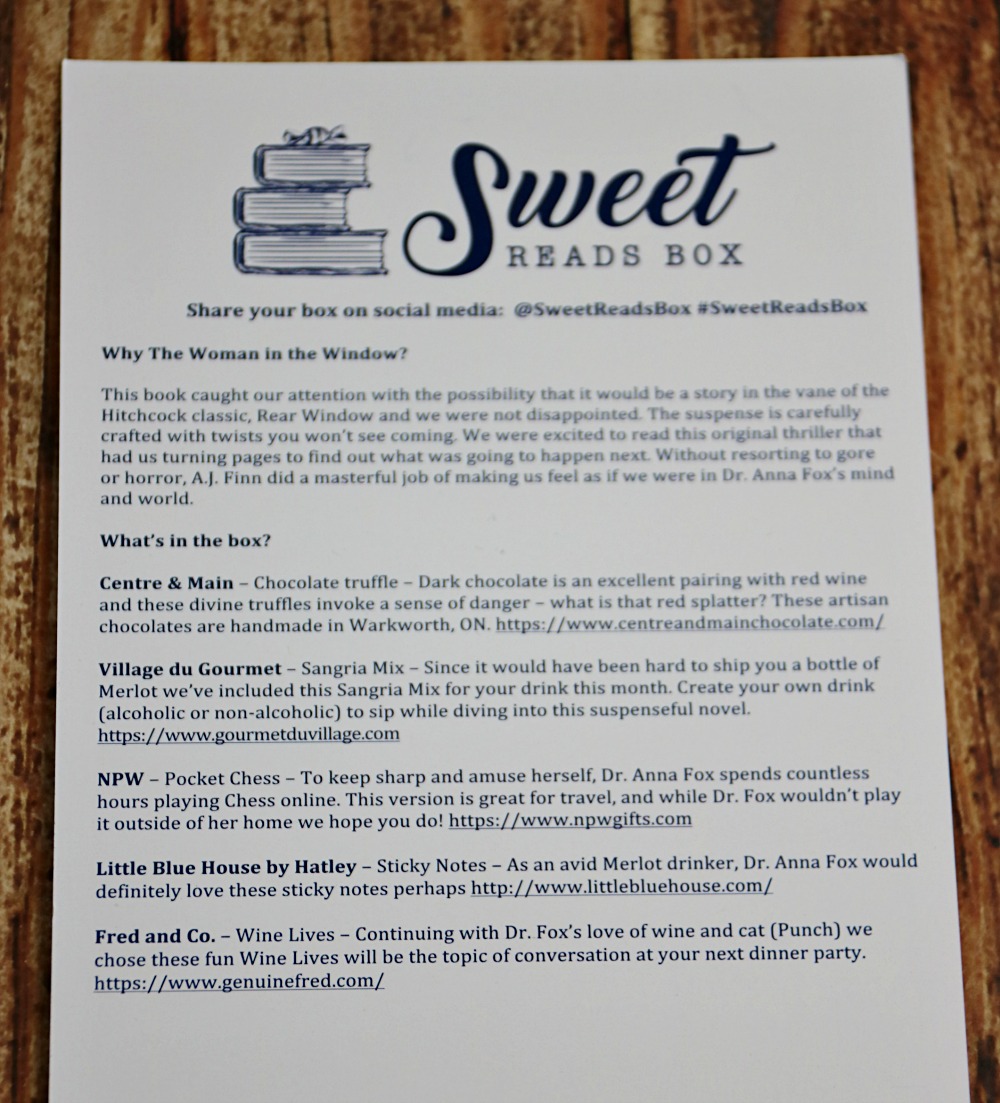 Sweet
READS BOX
Share your box on social media: @SweetReadsBox #SweetReadsBox
Why The Woman in the Window?
This book caught our attention with the possibility that it would be a story in the vane of the
Hitchcock classic, Rear Window and we were not disappointed. The suspense is carefully
crafted with twists you won't see coming. We were excited to read this original thriller that
had us turning pages to find out what was going to happen next. Without resorting to gore
or horror, A.J. Finn did a masterful job of making us feel as if we were in Dr. Anna Fox's mind
and world.
What's in the box?
Centre & Main – Chocolate truffle – Dark chocolate is an excellent pairing with red wine
and these divine truffles invoke a sense of danger – what is that red splatter? These artisan
chocolates are handmade in Warkworth, ON. https://www.centreandmainchocolate.com/
Village du Gourmet – Sangria Mix – Since it would have been hard to ship you a bottle of
Merlot we've included this Sangria Mix for your drink this month. Create your own drink
(alcoholic or non-alcoholic) to sip while diving into this suspenseful novel.
https://www.gourmetduvillage.com
NPW – Pocket Chess – To keep sharp and amuse herself, Dr. Anna Fox spends countless
hours playing Chess online. This version is great for travel, and while Dr. Fox wouldn't play
it outside of her home we hope you do! https://www.npwgifts.com
Little Blue House by Hatley – Sticky Notes – As an avid Merlot drinker, Dr. Anna Fox would
definitely love these sticky notes perhaps http://www.littlebluehouse.com/
Fred and Co. – Wine Lives – Continuing with Dr. Fox's love of wine and cat (Punch) we
chose these fun Wine Lives will be the topic of conversation at your next dinner party.
https://www.genuinefred.com/